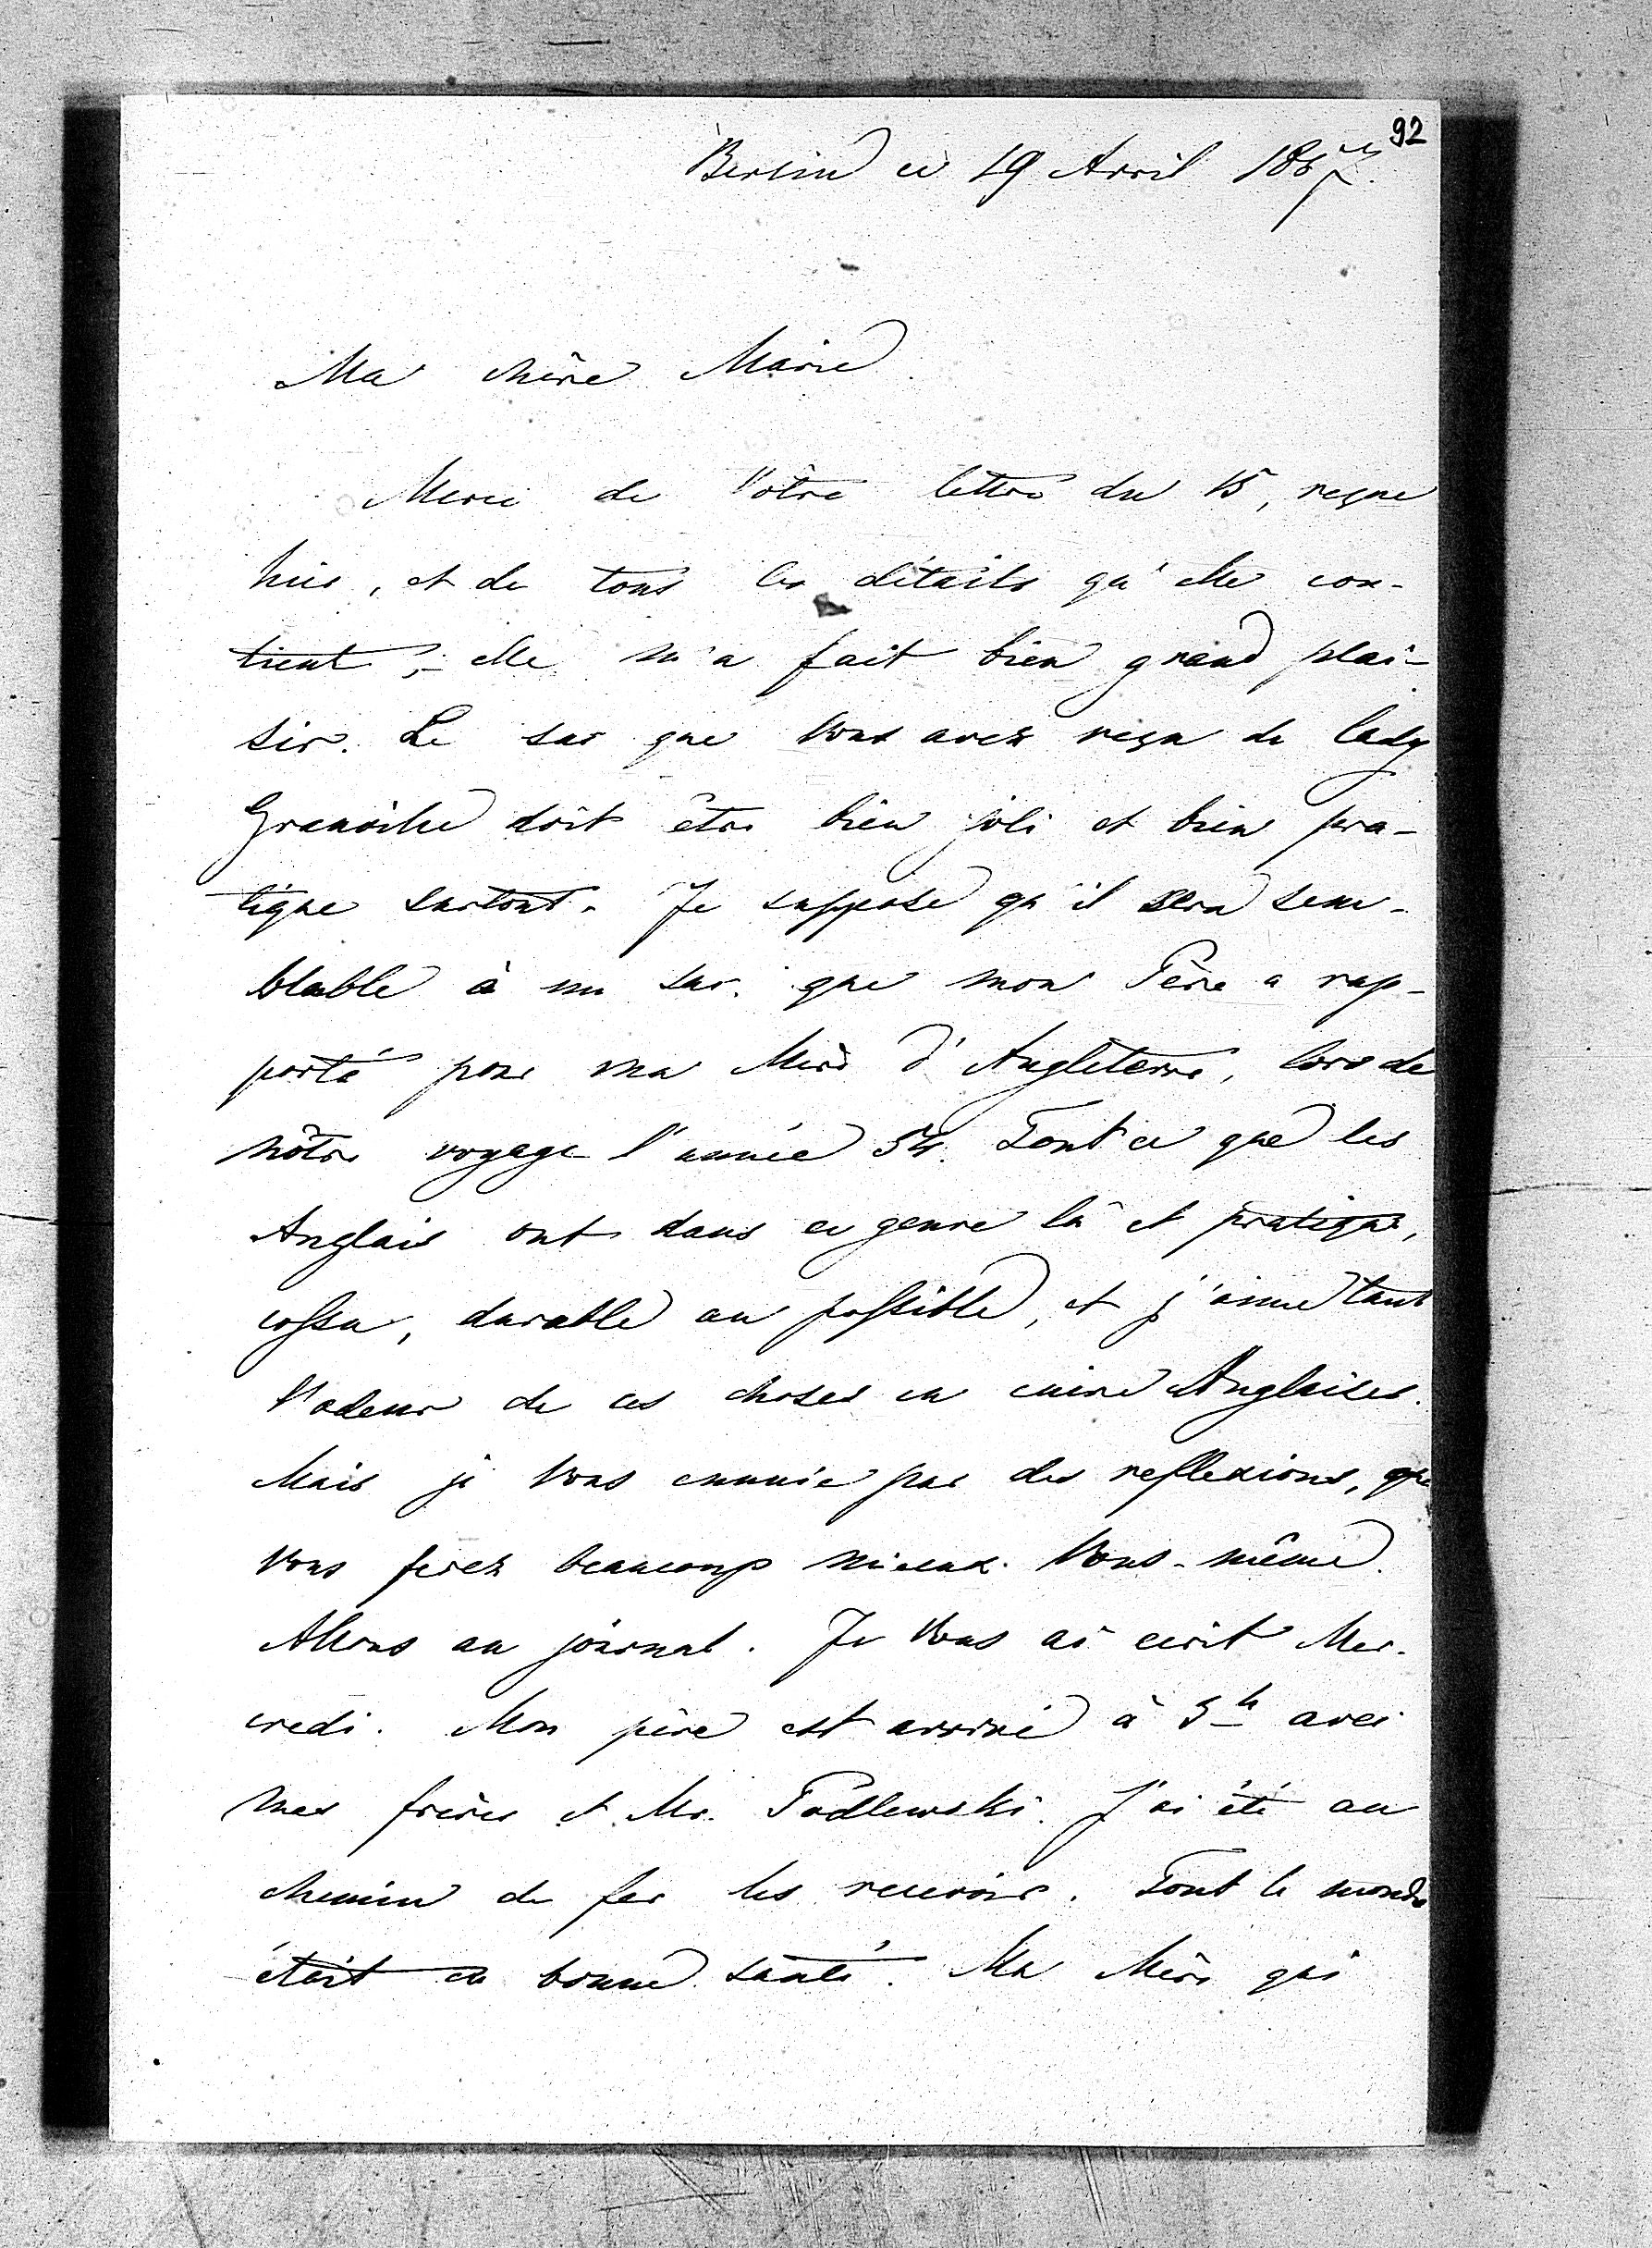 92
Berlin ce 19 Avril 1857.
Ma chère Marie
Merci de Vôtre lettre du 15, reçue
hier, et de tous les détails qu'elle con-
tient; elle m'a fait bien grand plai-
sir. Le sac que Vous avez reçu de lady
Granville doit être bien joli et bien pra-
tique surtout. Je suppose qu'il sera sem-
blable à un sac que mon Père a rap-
porté pour ma Mère d'Angleterre, lors de
nôtre voyage l'année 54. Tout ce que les
Anglais ont dans ce genre là et pratique,
cossu, durable au possible, et j'aime tant
l'odeur de ces choses en cuire Anglaises.
Mais je Vous ennuie par des reflexions, que
Vous ferez beaucoup mieux Vous-même.
Allons au journal. Je Vous ai ecrit Mer-
credi. Mon père est arrivé à 5 h avec
mes frères et Mr. Podlewski. J'ai été au
chemin de fer les recevoir. Tout le monde
était en bonne santé. Ma Mère qui